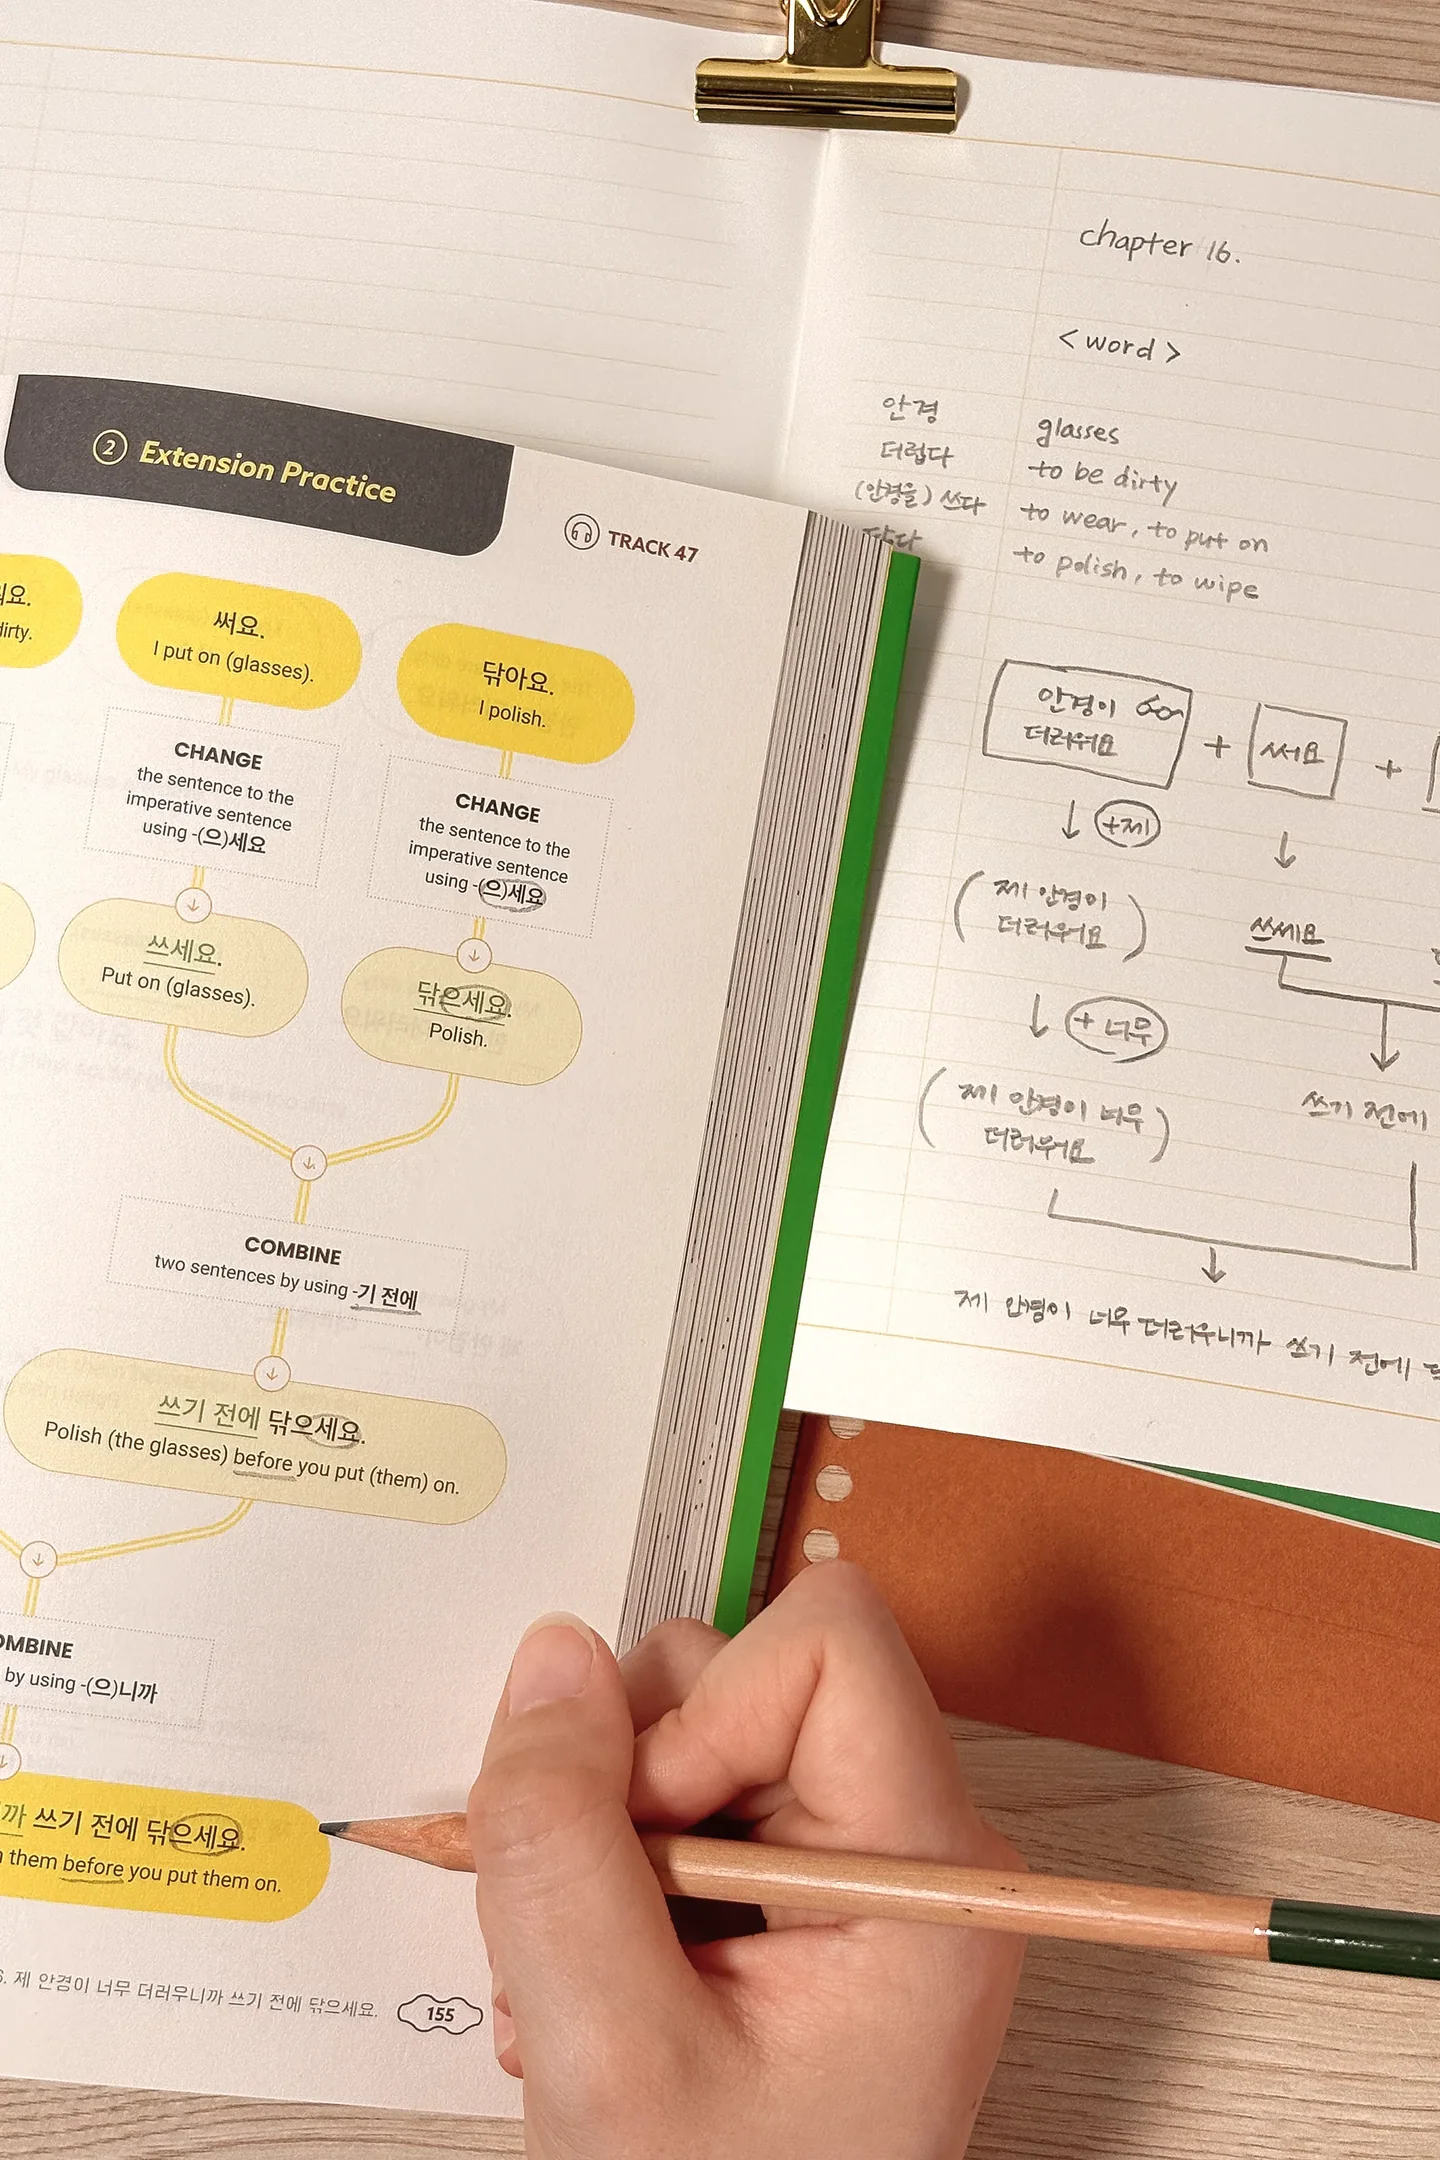 ② Extension Practice
TRACK 47
워요.
dirty.
써요.
I put on (glasses).
닦아요.
I polish.
CHANGE
the sentence to the
imperative sentence
using -(으)세요
CHANGE
the sentence to the
imperative sentence
using -(으)세요
쓰세요.
Put on (glasses).
닦으세요.
Polish.
COMBINE
two sentences by using -기 전에
쓰기 전에 닦으세요.
Polish (the glasses) before you put (them) on.
OMBINE
by using -(으)니까
까 쓰기 전에 닦으세요.
them before you put them on.
6. 제 안경이 너무 더러우니까 쓰기 전에 닦으세요.
155
chapter 16.
<word>
안경 glasses
더럽다 to be dirty
(안경을) 쓰다 to wear, to put on
닦다 to polish, to wipe
안경이
더러워요
+
써요
+
+제
제 안경이
더러워요
쓰세요
+ 너무
(제 안경이 너무
더러워요)
쓰기 전에
제 안경이 너무 더러우니까 쓰기 전에